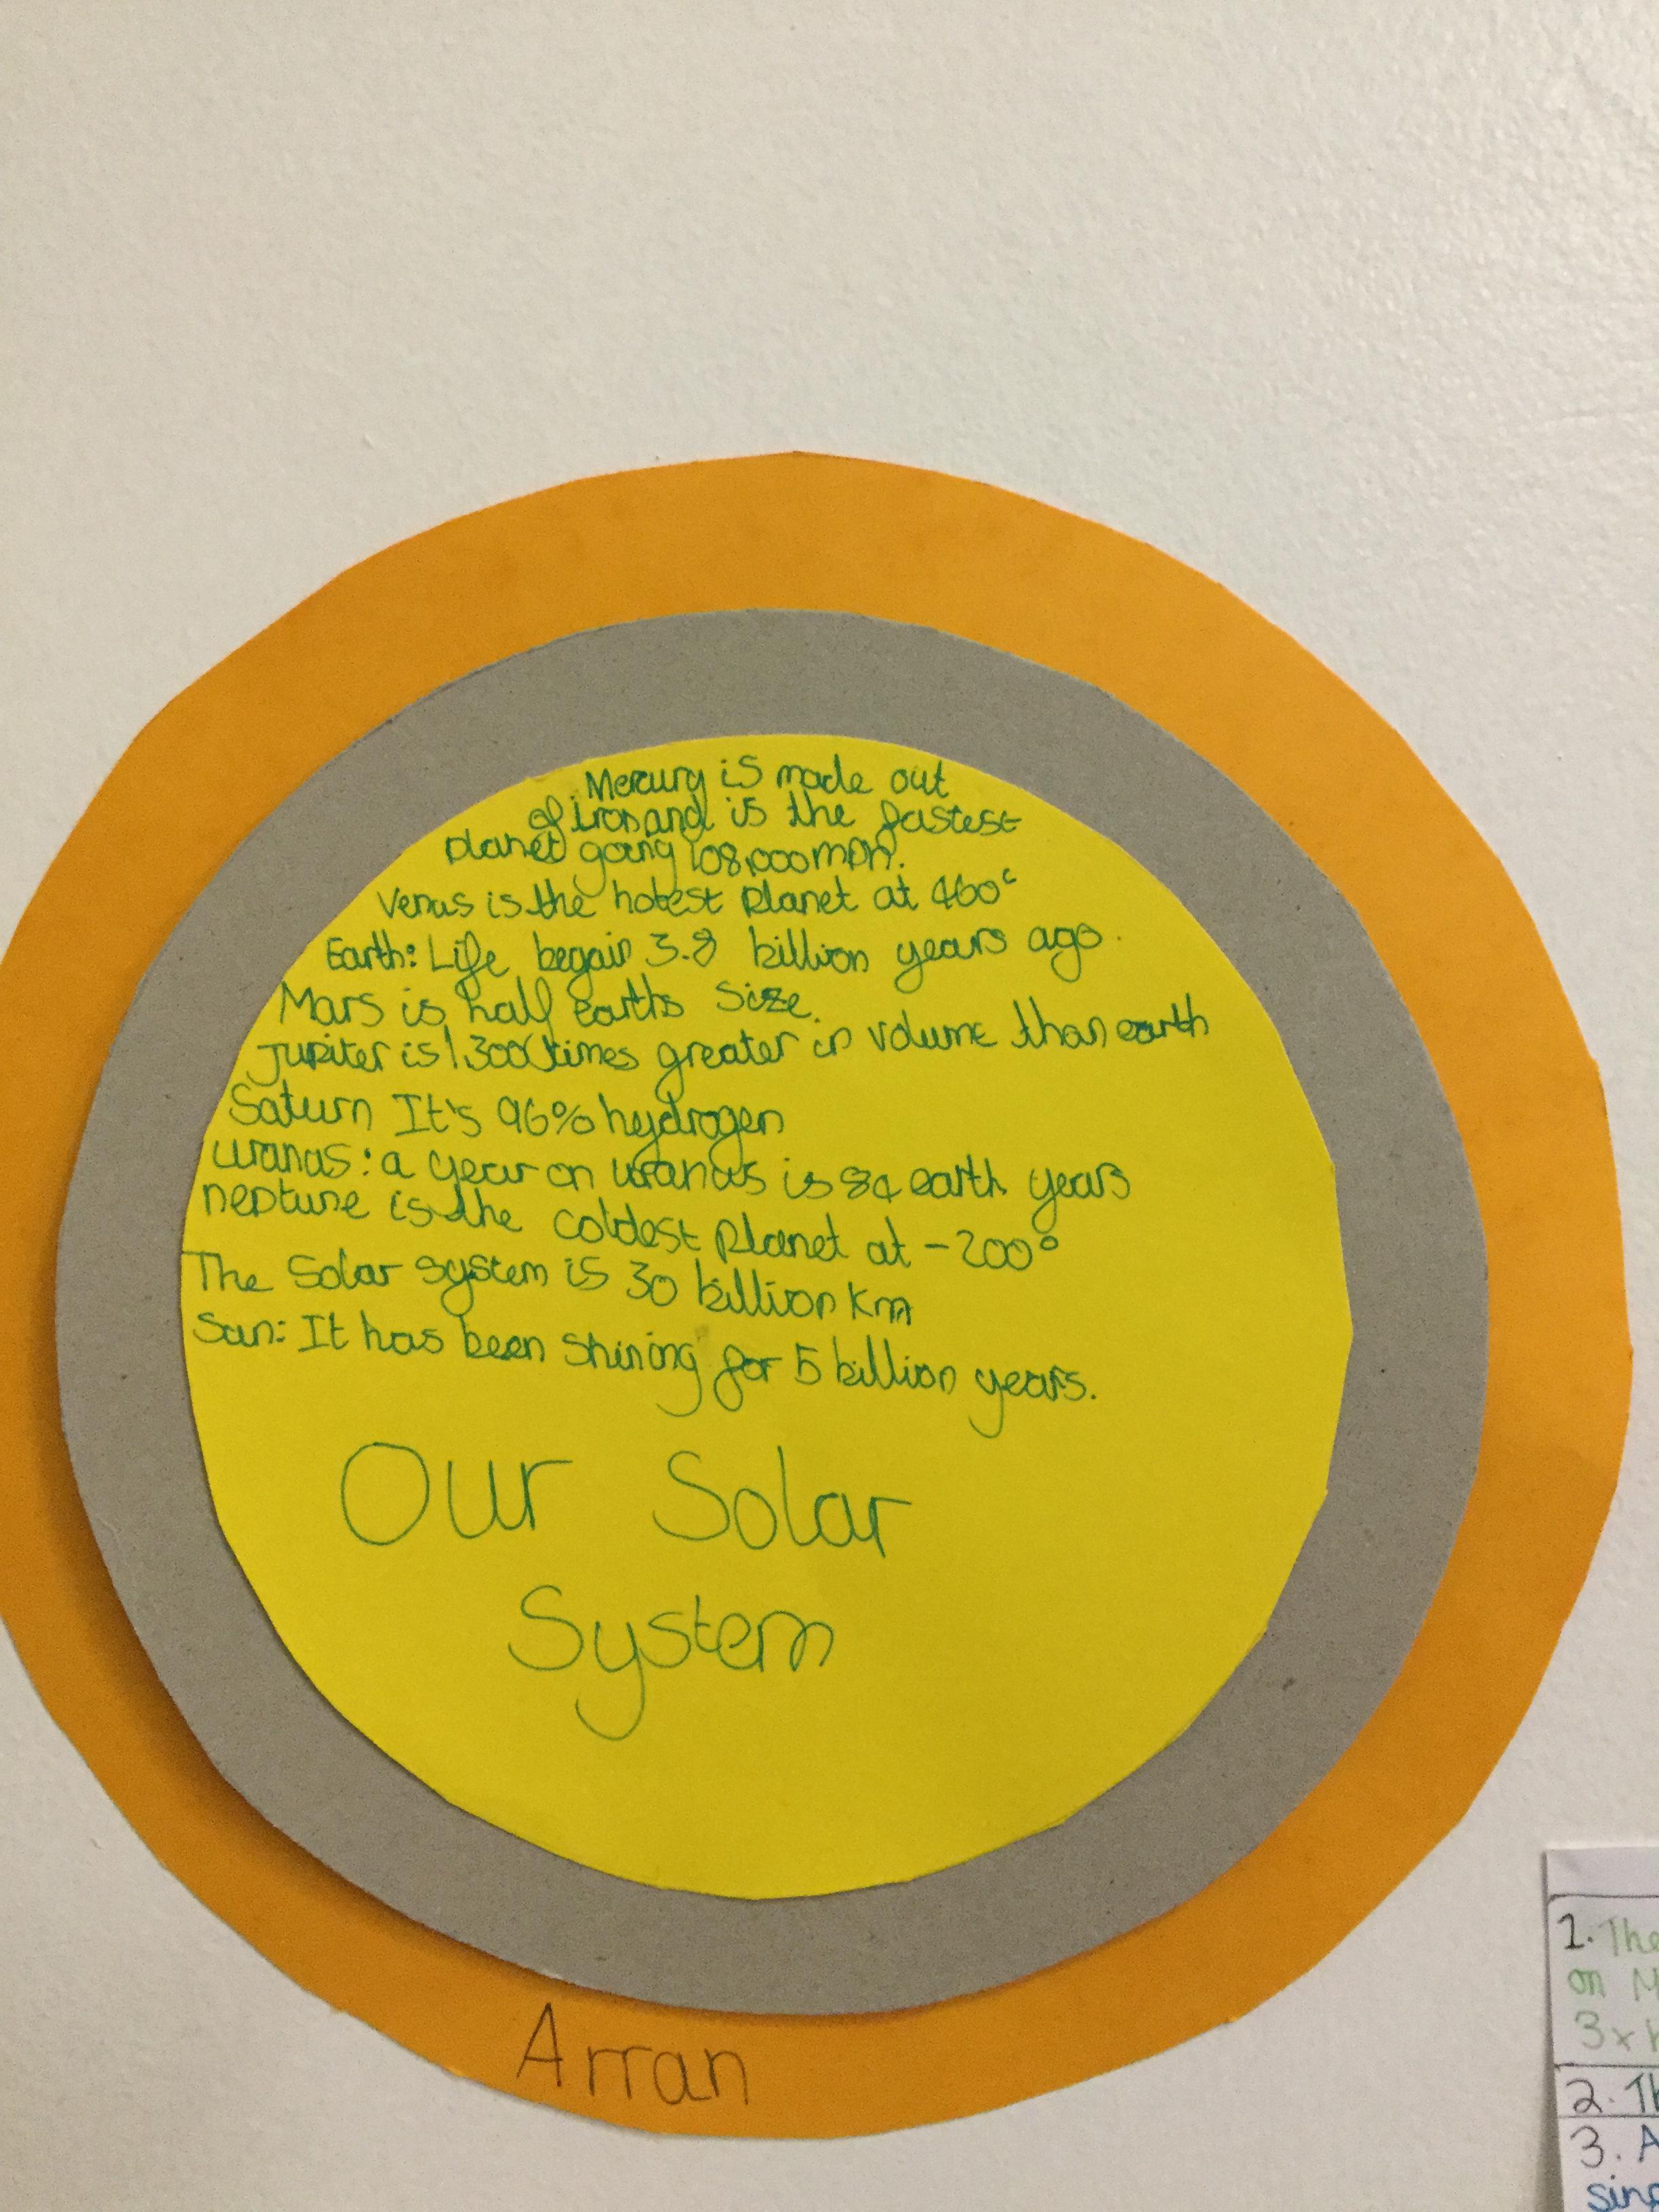 Mercury is made out
of iron and is the fastest
planet going 108,000mph.
Venus is the hotest planet at 460°c
Earth: Life begain 3.8 billion years ago.
Mars is half earths size.
Jupiter is 1,300 times greater in volume than earth
Saturn It's 96% hydrogen
Uranus: a year on uranus is 84 earth years
neptune is the coldest planet at -200°
The Solar system is 30 billion km
Sun: It has been shining for 5 billion years.
Our Solar
System
Arran
1. The
on M
3x
2. Th
3. A